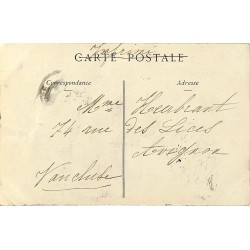 Imprimé
CARTE POSTALE
Correspondance
Adresse
Mme Heubrant
74 rue des Lices
Avignon
Vaucluse